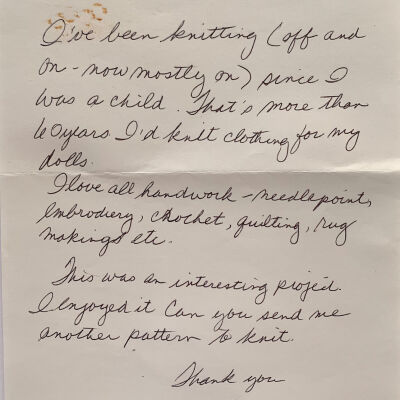 I've been knitting (off and
on - now mostly on) since I
was a child. That's more than
60 years I'd knit clothing for my
dolls.
I love all handwork - needlepoint,
embrodiery, chochet, quilting, rug
makings etc.
This was an interesting project.
I enjoyed it Can you send me
another pattern to knit.
Thank you